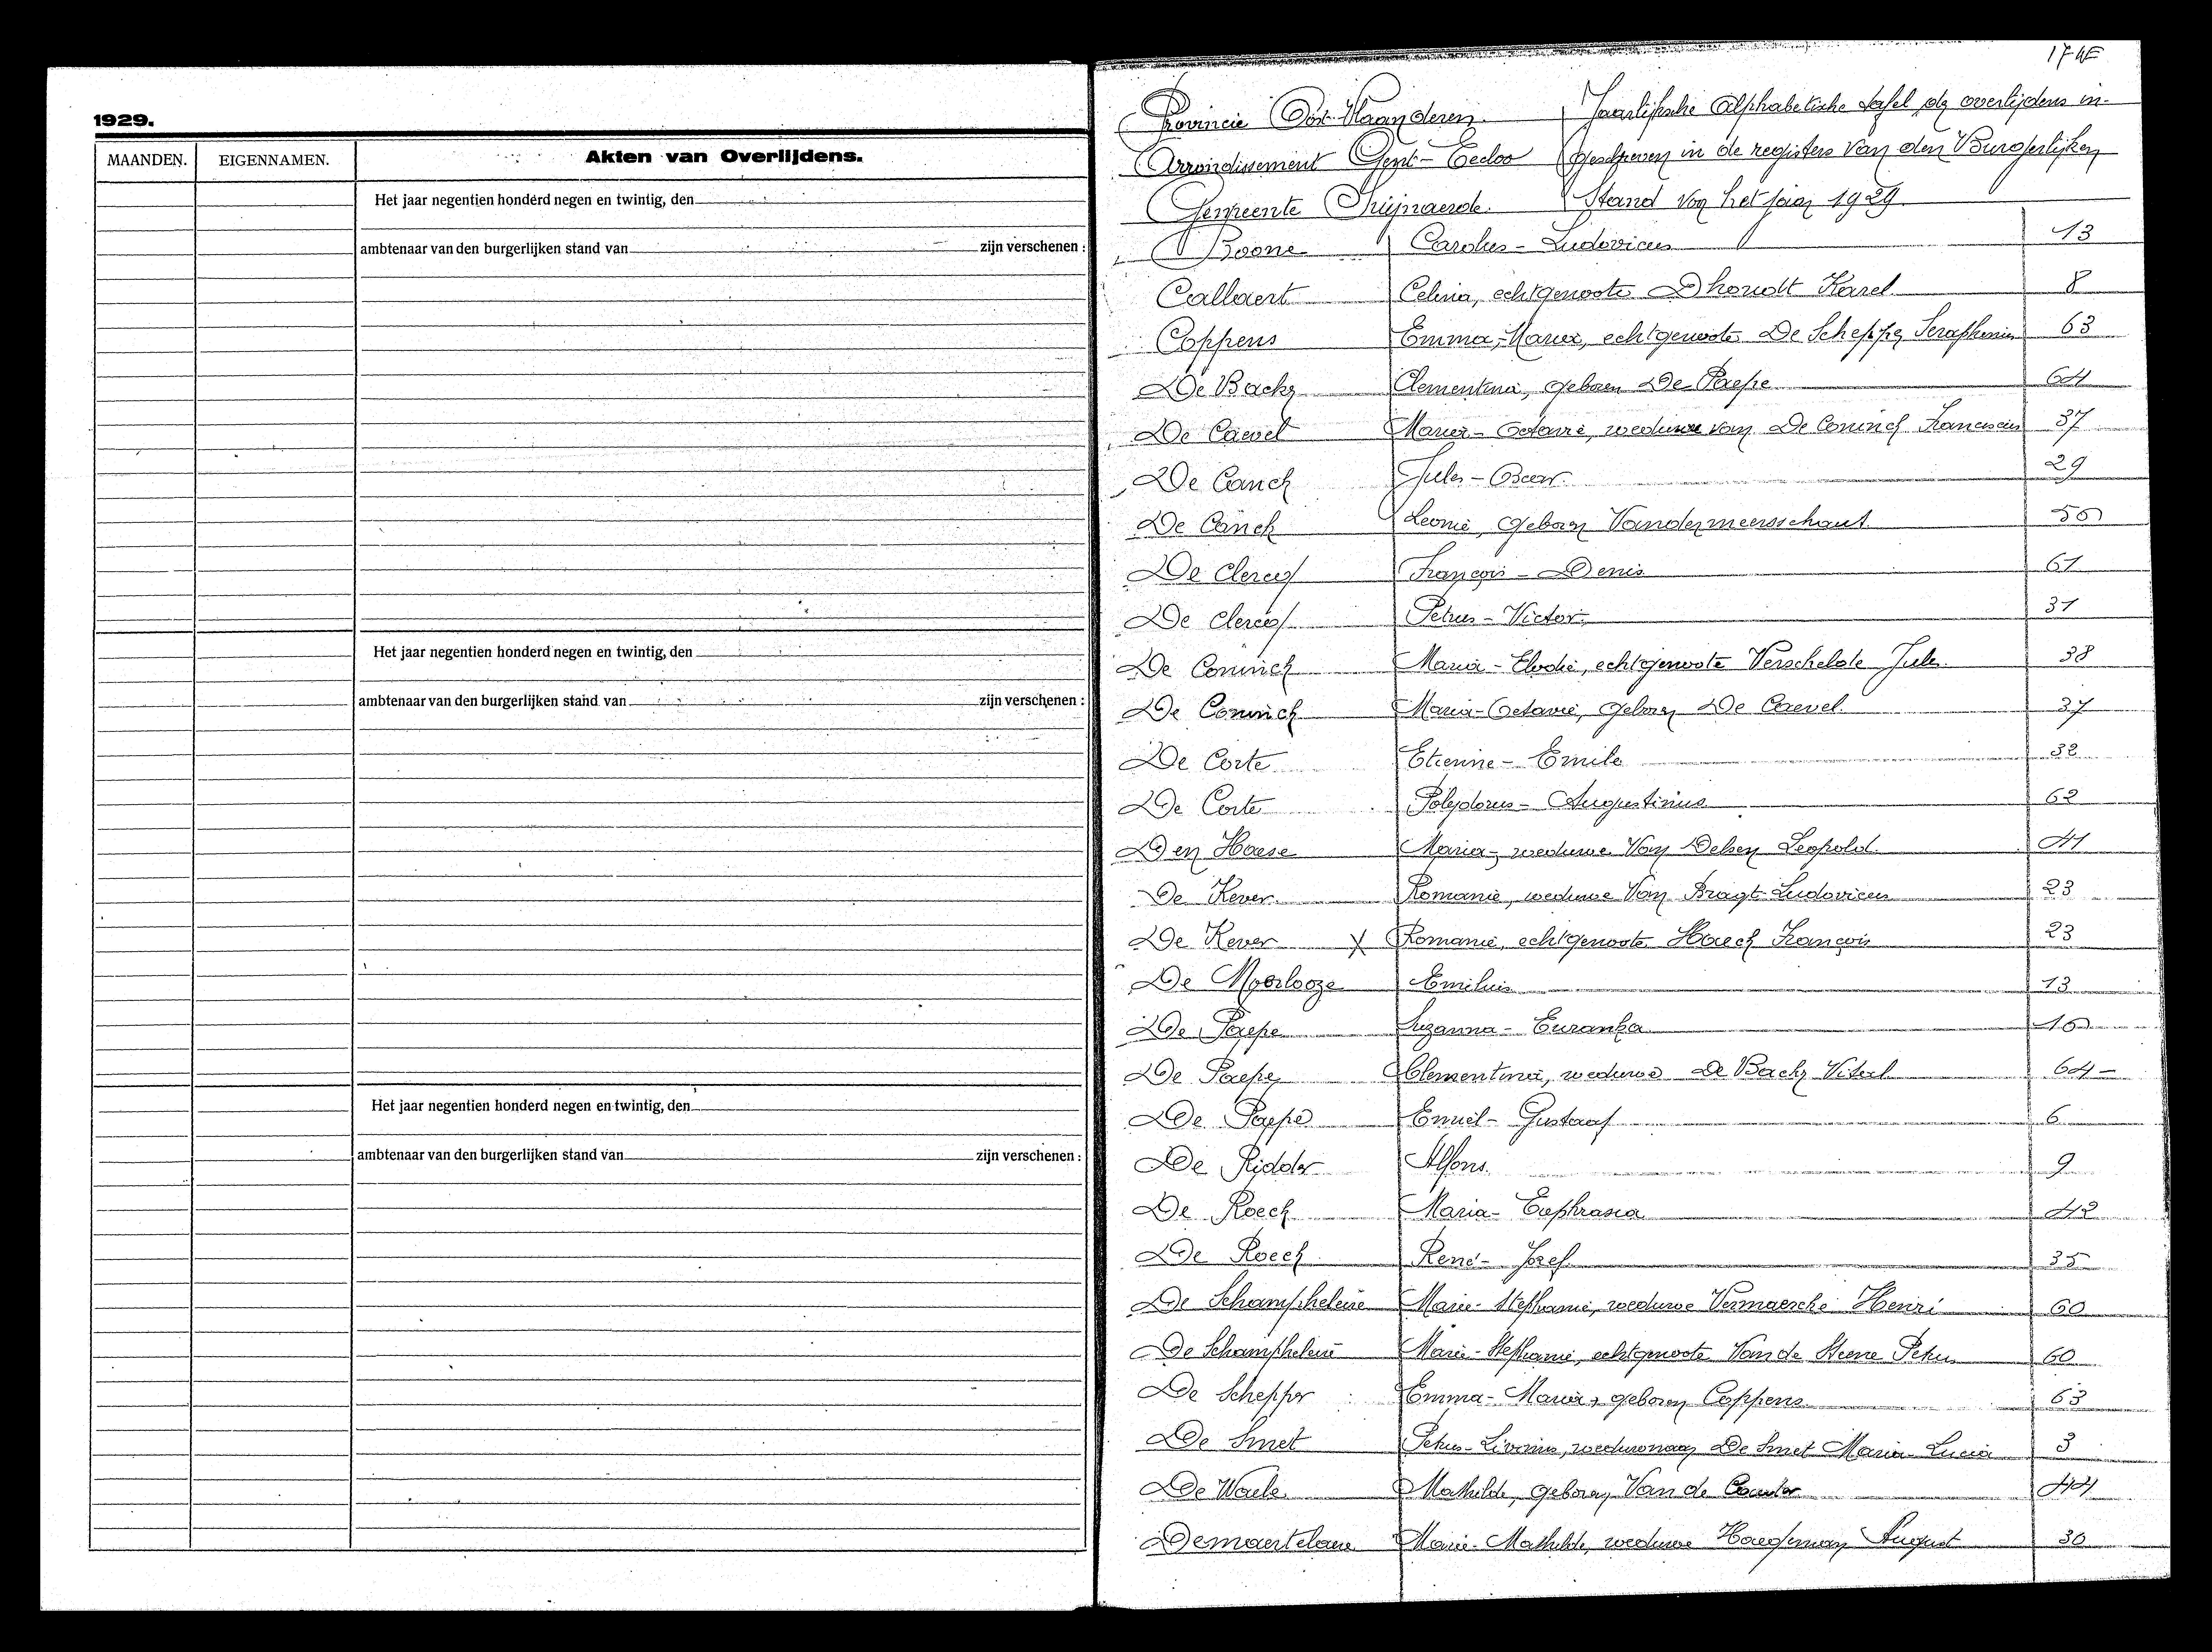 1929.
MAANDEN. EIGENNAMEN. Akten van Overlijdens.
Het jaar negentien honderd negen en twintig, den
ambtenaar van den burgerlijken stand van zijn verschenen :
Het jaar negentien honderd negen en twintig, den
ambtenaar van den burgerlijken stand van zijn verschenen :
Het jaar negentien honderd negen en twintig, den
ambtenaar van den burgerlijken stand van zijn verschenen :
Provincie Oost-Vlaanderen. Jaarlijksche Alphabetische tafel der overlijdens in-
Arrondissement Gent-Eecloo geschreven in de registers van den Burgerlijken
Gemeente Swijnaerde. Stand van het jaar 1929.
Boone Carolus-Ludovicus 13
Callaert Celina, echtgenoote Dhondt Karel 8
Coppens Emma-Maria, echtgenoote De Schepper Seraphinus 63
De Backer Clementina, geboren De Paepe 64
De Caevel Maria-Octavie, weduwe van De Coninck Franciscus 37
De Canck Jules-Oscar. 29
De Canck Leonie, geboren Vandermeersschaut. 50
De Clercq François-Denis 61
De Clercq Petrus-Victor. 31
De Coninck Maria-Elodie, echtgenoote Verschelde Jules. 38
De Coninck Maria-Octavie, geboren De Caevel. 37
De Corte Etienne-Emile 32
De Corte Polydorus-Augustinus 62
Den Haese Maria, weduwe Van Delsen Leopold. 41
De Kever Romanie, weduwe Van Bragt-Ludovicus 23
De Kever X Romanie, echtgenoote Haeck François 23
De Moerlooze Emilius 13
De Paepe Suzanna- 10
De Paepe Clementina, weduwe De Backer Vitael 64-
De Paepe Emiel-Gustaaf 6
De Ridder Alfons. 9
De Roeck Maria-Euphrasia 42
De Roeck René-Jozef. 35
De Schampheleire Marie-Stephanie, weduwe Vermaercke Henri 60
De Schampheleire Marie-Stephanie, echtgenoote Van de Steene Petrus 60
De Schepper Emma-Maria, geboren Coppens 63
De Smet Petrus-Livinus, weduwnaar De Smet Maria-Lucia 3
De Waele Mathilde, geboren Van de Cauter 44
Demaertelaere Marie-Mathilde, weduwe Haegeman August 30